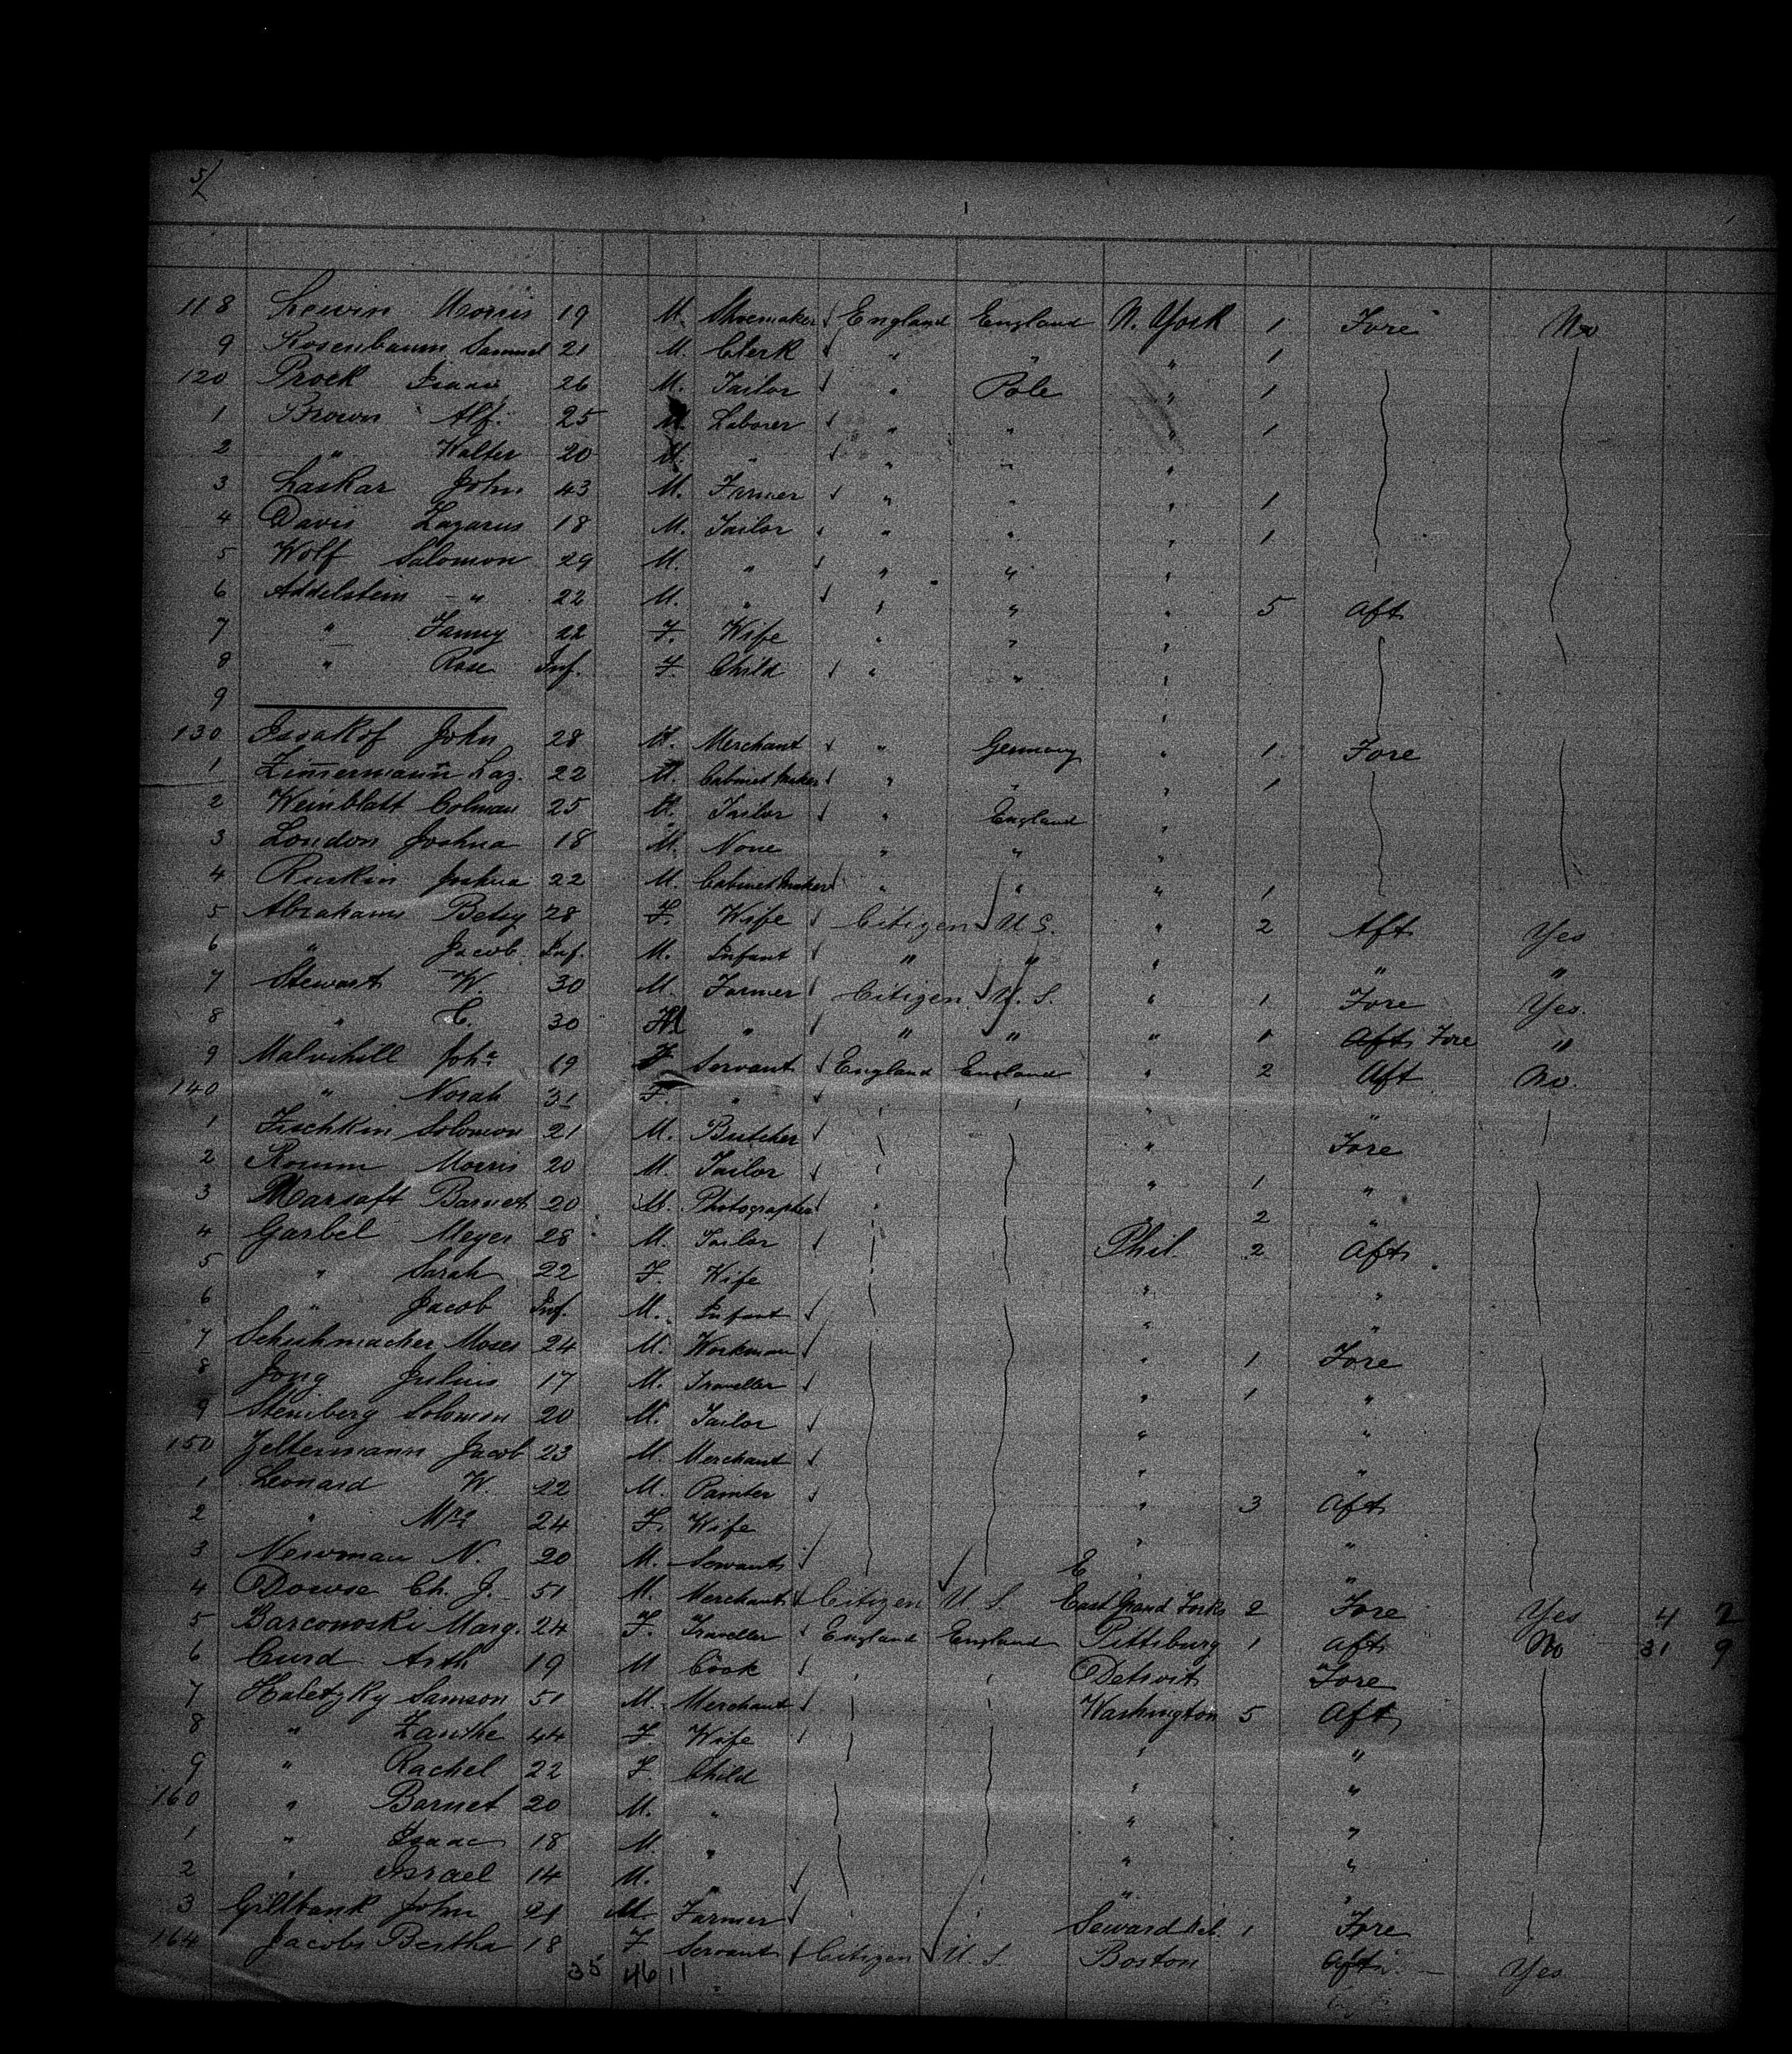 5/
118 Lewin Morris 19 M. Shoemaker √ England England N. York 1 Fore No
9 Rosenbaum Samuel 21 M. Clerk √ " " " 1
120 Prock Isaac 26 M. Tailor √ " Pole " 1
1 Brown Alf. 25 M. Laborer √ " " " 1
2 " Walter 20 M. " √ " " "
3 Laskar John 43 M. Farmer √ " " " 1
4 Davis Lazarus 18 M. Tailor √ " " " 1
5 Wolf Salomon 29 M. " √ " " "
6 Addelstein " 22 M. " √ " " " 5 Aft
7 " Fanny 22 F. Wife " " "
8 " Rose Inf. F. Child √ " " "
9 "
130 Issakof John 28 M. Merchant √ " Germany " 1 Fore
1 Zimmermann Laz. 22 M. Cabinet Maker √ " " " 1
2 Weinblatt Colman 25 M. Tailor √ " England "
3 London Joshua 18 M. None " " "
4 Ruskin Joshua 22 M. Cabinet Maker √ " " " 1
5 Abrahams Betsy 28 F. Wife √ Citizen √ U S. " 2 Aft Yes
6 " Jacob Inf. M. Infant √ " " " " "
7 Stewart W. 30 M. Farmer √ Citizen √ U. S. " 1 Fore Yes.
8 " C. 30 M " √ " " " 1 Aft Fore "
9 Malvihill Joha 19 F Servant √ England England " 2 Aft No.
140 " Norah 31 F. " √ " " " "
1 Fischkin Solomon 21 M. Butcher √ " Fore
2 Romm Morris 20 M. Tailor √ " 1 "
3 Marsaft Barnet 20 M. Photographer √ " 2 "
4 Garbel Meyer 28 M. Tailor √ Phil. 2 Aft
5 " Sarah 22 F. Wife " "
6 " Jacob Inf. M. Infant √ " "
7 Schuhmacher Moses 24 M. Workman √ " 1 Fore
8 Jong Julius 17 M. Traveller √ " 1 "
9 Steinberg Solomon 20 M. Tailor √ " "
150 Zeltermann Jacob 23 M. Merchant √ " "
1 Leonard W. 22 M. Painter √ " 3 Aft
2 " Mrs 24 F. Wife " "
3 Newman N. 20 M. Servant √ E "
4 Dowse Ch. J. 51 M. Merchant √ Citizen √ U. S. East Grand Forks 2 Fore Yes 4 2
5 Barconoski Marg. 24 F. Traveller √ England England Pittsburg 1 Aft No 31 9
6 Curd Arth 19 M Cook √ Detroit Fore
7 Haletzky Samson 51 M. Merchant √ Washington 5 Aft
8 " Zanthe 44 F. Wife " "
9 " Rachel 22 F. Child " "
160 " Barnet 20 M. " " "
1 " Isaac 18 M. " " "
2 " Israel 14 M. " √ " "
3 Gillbank John 21 M Farmer √ Seward Neb. 1 Fore
164 Jacobs Bertha 18 F Servant √ Citizen √ U. S. Boston Aft Yes
35 46 11